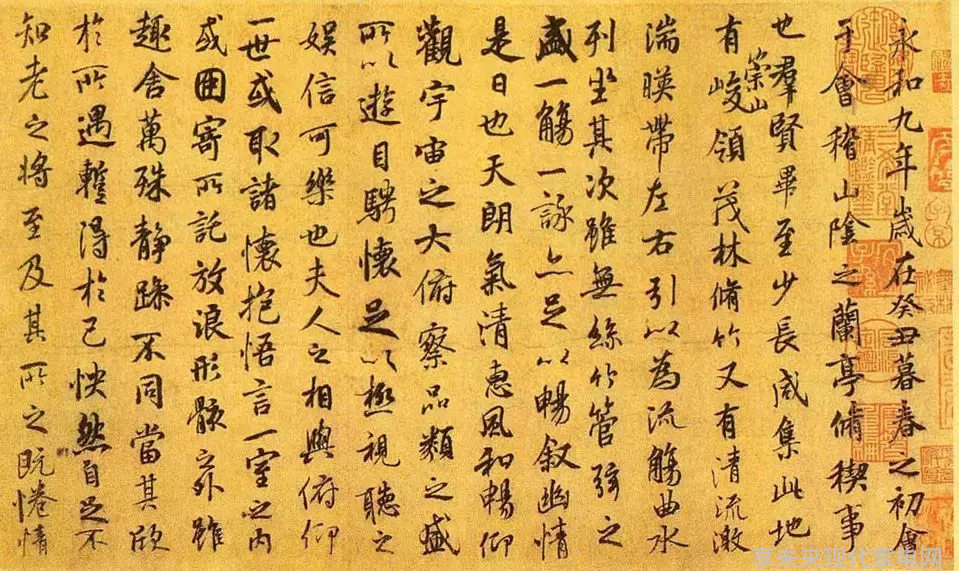 永和九年歲在癸丑暮春之初會
于會稽山陰之蘭亭脩稧事
也羣賢畢至少長咸集此地
有崇山峻領茂林脩竹又有清流激
湍暎帶左右引以為流觴曲水
列坐其次雖無絲竹管弦之
盛一觴一詠亦足以暢叙幽情
是日也天朗氣清惠風和暢仰
觀宇宙之大俯察品類之盛
所以遊目騁懷足以極視聽之
娛信可樂也夫人之相與俯仰
一世或取諸懷抱悟言一室之內
或因寄所託放浪形骸之外雖
趣舍萬殊靜躁不同當其欣
於所遇蹔得於己怏然自足不
知老之將至及其所之既惓情
享未来现代家电网